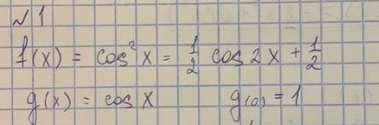 № 1
f(x) = cos² x = 1/2 cos 2x + 1/2
g(x) = cos x g(0) = 1